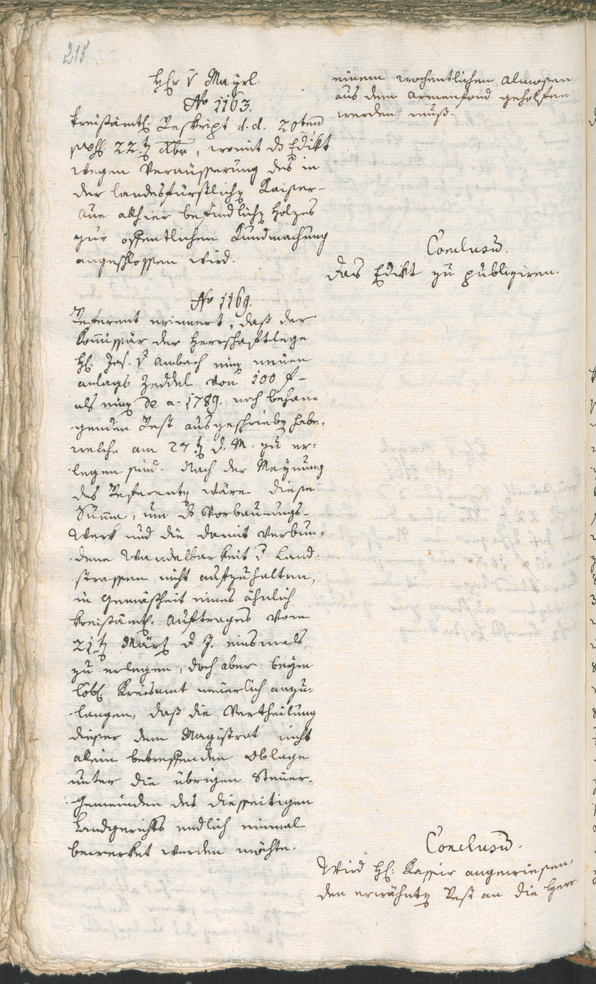 215
Hr v Mayrl.
No 1163.
Kreisämtl. Reskript d. d. 20ten
22ten Xbr, womit das Edikt
wegen Veräusserung des in
der landesfürstlichen Kaiser-
Aue allhier befindlichen Holzes
zur öffentlichen Kundmachung
angeschlossen wird.
No 1169.
Referent erinnert, daß der
Kommissär der Herrschaftlege
H. Jos. v Anbach einen neuen
anlags Zeddel von 100 f
als einen de a. 1789. noch behan-
genden Rest ausgeschrieben habe,
welche am 27ten d. M. zu er-
legen sind. Nach der Meynung
des Referenten wäre diese
Summa, um das Vorbauungs-
Werk und die damit verbun-
dene Wandelbarkeit d Land-
strassen nicht aufzuhalten,
in Gemäsheit eines ähnlich
Kreisämtl. Auftrages vom
21ten März d. J. einsmals
zu erlegen, doch aber beym
löbl. Kreisamt neuerlich anzu-
langen, daß die Vertheilung
dieser dem Magistrat nicht
allein betreffenden Oblage
unter die übrigen Steuer-
Gemeinden des diesseitigen
Landgerichts endlich einmal
bewerket werden möchte.
einem wochentlichen Almosen
aus dem Armenfond geholfen
werden muß.
Conclusum.
Das Edikt zu publiziren.
Conclusum.
Wird H. Kassier angewiesen,
den erwähnten Rest an die Herr